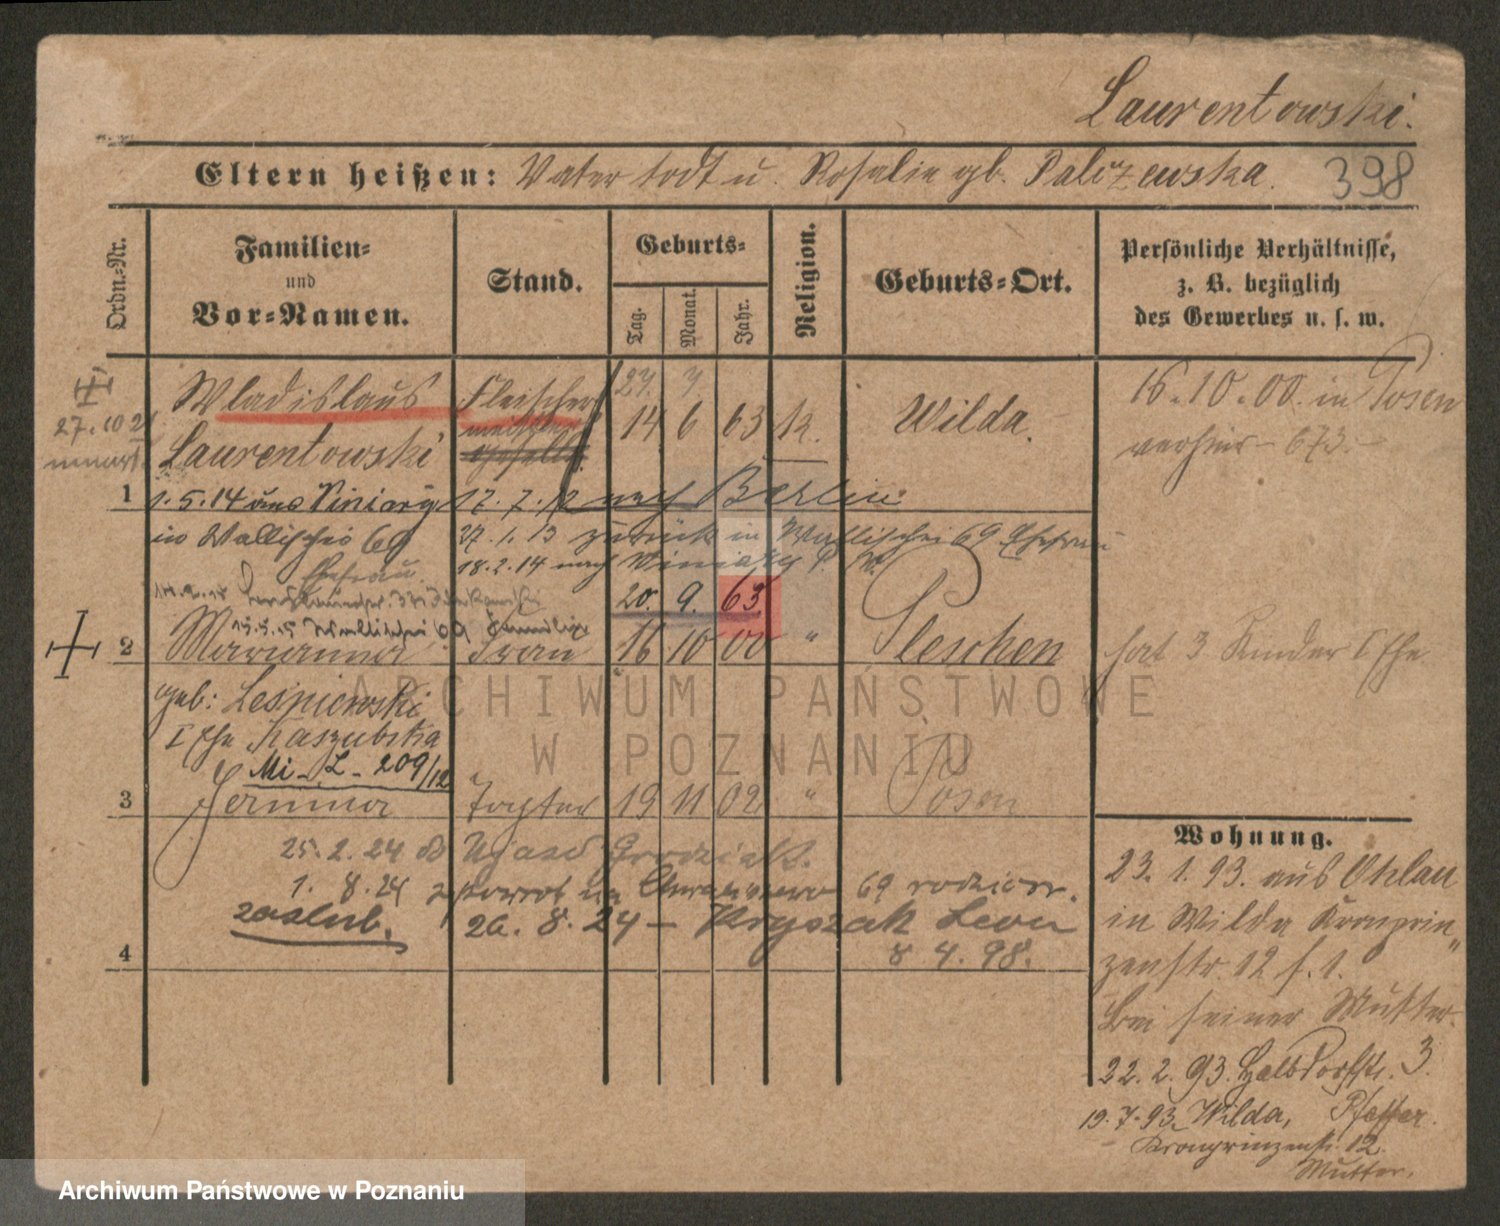 Laurentowski.
Eltern heißen: Vater todt u. Rosalie gb. Palizewska. 398
Ordn.-Nr.
Familien-
und
Vor-Namen.
Stand.
Geburts-
Tag.
Monat.
Jahr.
Religion.
Geburts-Ort.
Persönliche Verhältnisse,
z. B. bezüglich
des Gewerbes u. s. w.
27. 10 21
Wladislaus Fleischer 27. 7
Laurentowski 14 6 63 k. Wilda.
16. 10. 00. in Posen
673
1
1. 5. 14 aus Winiary 17. 7. 12 nach Berlin
in Wallischei 69 27. 1. 13 zurück in Wallischei 69 Ehefrau
18. 2. 14 nach Winiary
Ehefrau
20. 9. 63
15.5.15 Wallischei 69 Familie
2 Marianna Frau 16 10 00 " Pleschen
hat 3 Kinder I Ehe
geb: Lesniewski
I Ehe Kaszubska
Mi - L - 209/12
3 Jannina Tochter 19 11 02 " Posen
25. 2. 24 Ujazd Grodzisk.
1. 8. 24 69
zaslub. 26. 8. 24 - Kryszak Leon
8 4. 98.
4
Wohnung.
23. 1. 93. aus Ohlau
in Wilda Kronprin
zenstr. 12 b. 1.
bei seiner Mutter.
22. 2. 93. Halbdorfstr. 3.
19. 7. 93 Wilda,
Kronprinzenstr. 12
Mutter.
ARCHIWUM PAŃSTWOWE
W POZNANIU
Archiwum Państwowe w Poznaniu